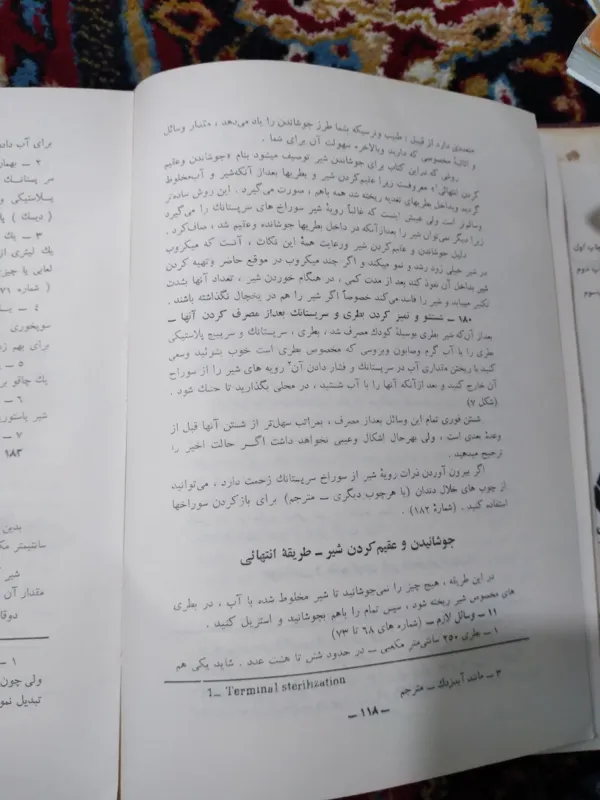 متعددی دارد از قبیل : طبیب ودرسیکه بشما طرز جوشاندن را یاد می‌دهد ، مقدار وسائل
و اثاثیهٔ مخصوصی که دارید وبالاخره سهولت آن برای شما .
روشی که دراین کتاب برای جوشاندن شیر توصیف میشود بنام «جوشاندن وعقیم
کردن انتهائی۱» معروفست زیرا عقیم‌کردن شیر و بطریها بعداز آنکه‌شیر و آب‌مخلوط
گردید وبداخل بطریهای تغذیه ریخته شد همه باهم ، صورت می‌گیرد . این روش ساده‌تر
وسالم‌تر است ولی عیبش اینست که غالباً رویهٔ شیر سوراخ های سرپستانك را می‌گیرد
زیرا دیگر نمی‌توان شیر را بعدازآنکه درداخل بطریها جوشانده وعقیم شد ، صاف‌کرد .
دلیل جوشاندن و عقیم‌کردن شیر ورعایت همهٔ این نکات ، آنست که میکروب
در شیر خیلی زود رشد و نمو میکند و اگر چند میکروب در موقع حاضر وتهیه کردن
شیر بداخل آن نفوذ کند بعد از مدت کمی ، در هنگام خوردن شیر ، تعداد آنها بشدت
تکثیر مییابد و شیر را فاسد می‌کند خصوصاً اگر شیر را هم در یخچال نگذاشته باشند .
۱۸۰ ــ شستشو و تمیز کردن بطری و سرپستانك بعداز مصرف کردن آنها ــ
بعداز آن‌که شیر بطری بوسیلهٔ کودك مصرف شد ، بطری ، سرپستانك و سرپیچ پلاستیکی
بطری را با آب گرم وصابون وبروسی که مخصوص بطری است خوب بشوئید وسعی
کنید با ریختن مقداری آب در سرپستانك و فشار دادن آن۲ رویه های شیر را از سوراخ
آن خارج کنید و بعد ازآنکه آنها را با آب شستید ، در محلی بگذارید تا خنك شود .
(شکل ۷)
شستن فوری تمام این وسائل بعداز مصرف ، بمراتب سهل‌تر از شستن آنها قبل از
وعدهٔ بعدی است ، ولی بهرحال اشکال وعیبی نخواهد داشت اگر حالت اخیر را
ترجیح میدهید .
اگر بیرون آوردن ذرات رویهٔ شیر از سوراخ سرپستانك زحمت دارد ، می‌توانید
از چوب های خلال دندان (یا هرچوب دیگری ــ مترجم) برای بازکردن سوراخها
استفاده کنید . (شمارهٔ ۱۸۲) .
جوشانیدن و عقیم کردن شیر ــ طریقهٔ انتهائی
در این طریقه ، هیچ چیز را نمی‌جوشانید تا شیر مخلوط شده با آب ، در بطری
های مخصوص شیر ریخته شود ، سپس تمام را باهم بجوشانید و استریل کنید .
۱۱ ــ وسائل لازم ــ (شماره های ۶۸ تا ۷۳)
۱ ــ بطری ۲۵۰ سانتی‌متر مکعبی ــ در حدود شش تا هشت عدد . شاید یکی هم
1_ Terminal sterihzation
۳ ــ مانند آبدزدك ــ مترجم
ــ ۱۱۸ ــ
برای آب داد
۲ ــ بهمان
سر پستانك
پلاستیکی و
( دیسك ) پلا
۳ ــ یك
یك لیتری از
لعابی یا چیز
( شماره ۷۱
۴ ــ یك
سوپخوری
برای بهم ز
۵ ــ
یك چاقو بر
۶ ــ
شیر پاستور
۷ ــ
۱۸۳
بدین
سانتیمتر مك
شیر
مقدار آن
دوقا
۱ ــ
ولی چون
تبدیل نمو
چاپ اول
چاپ دوم